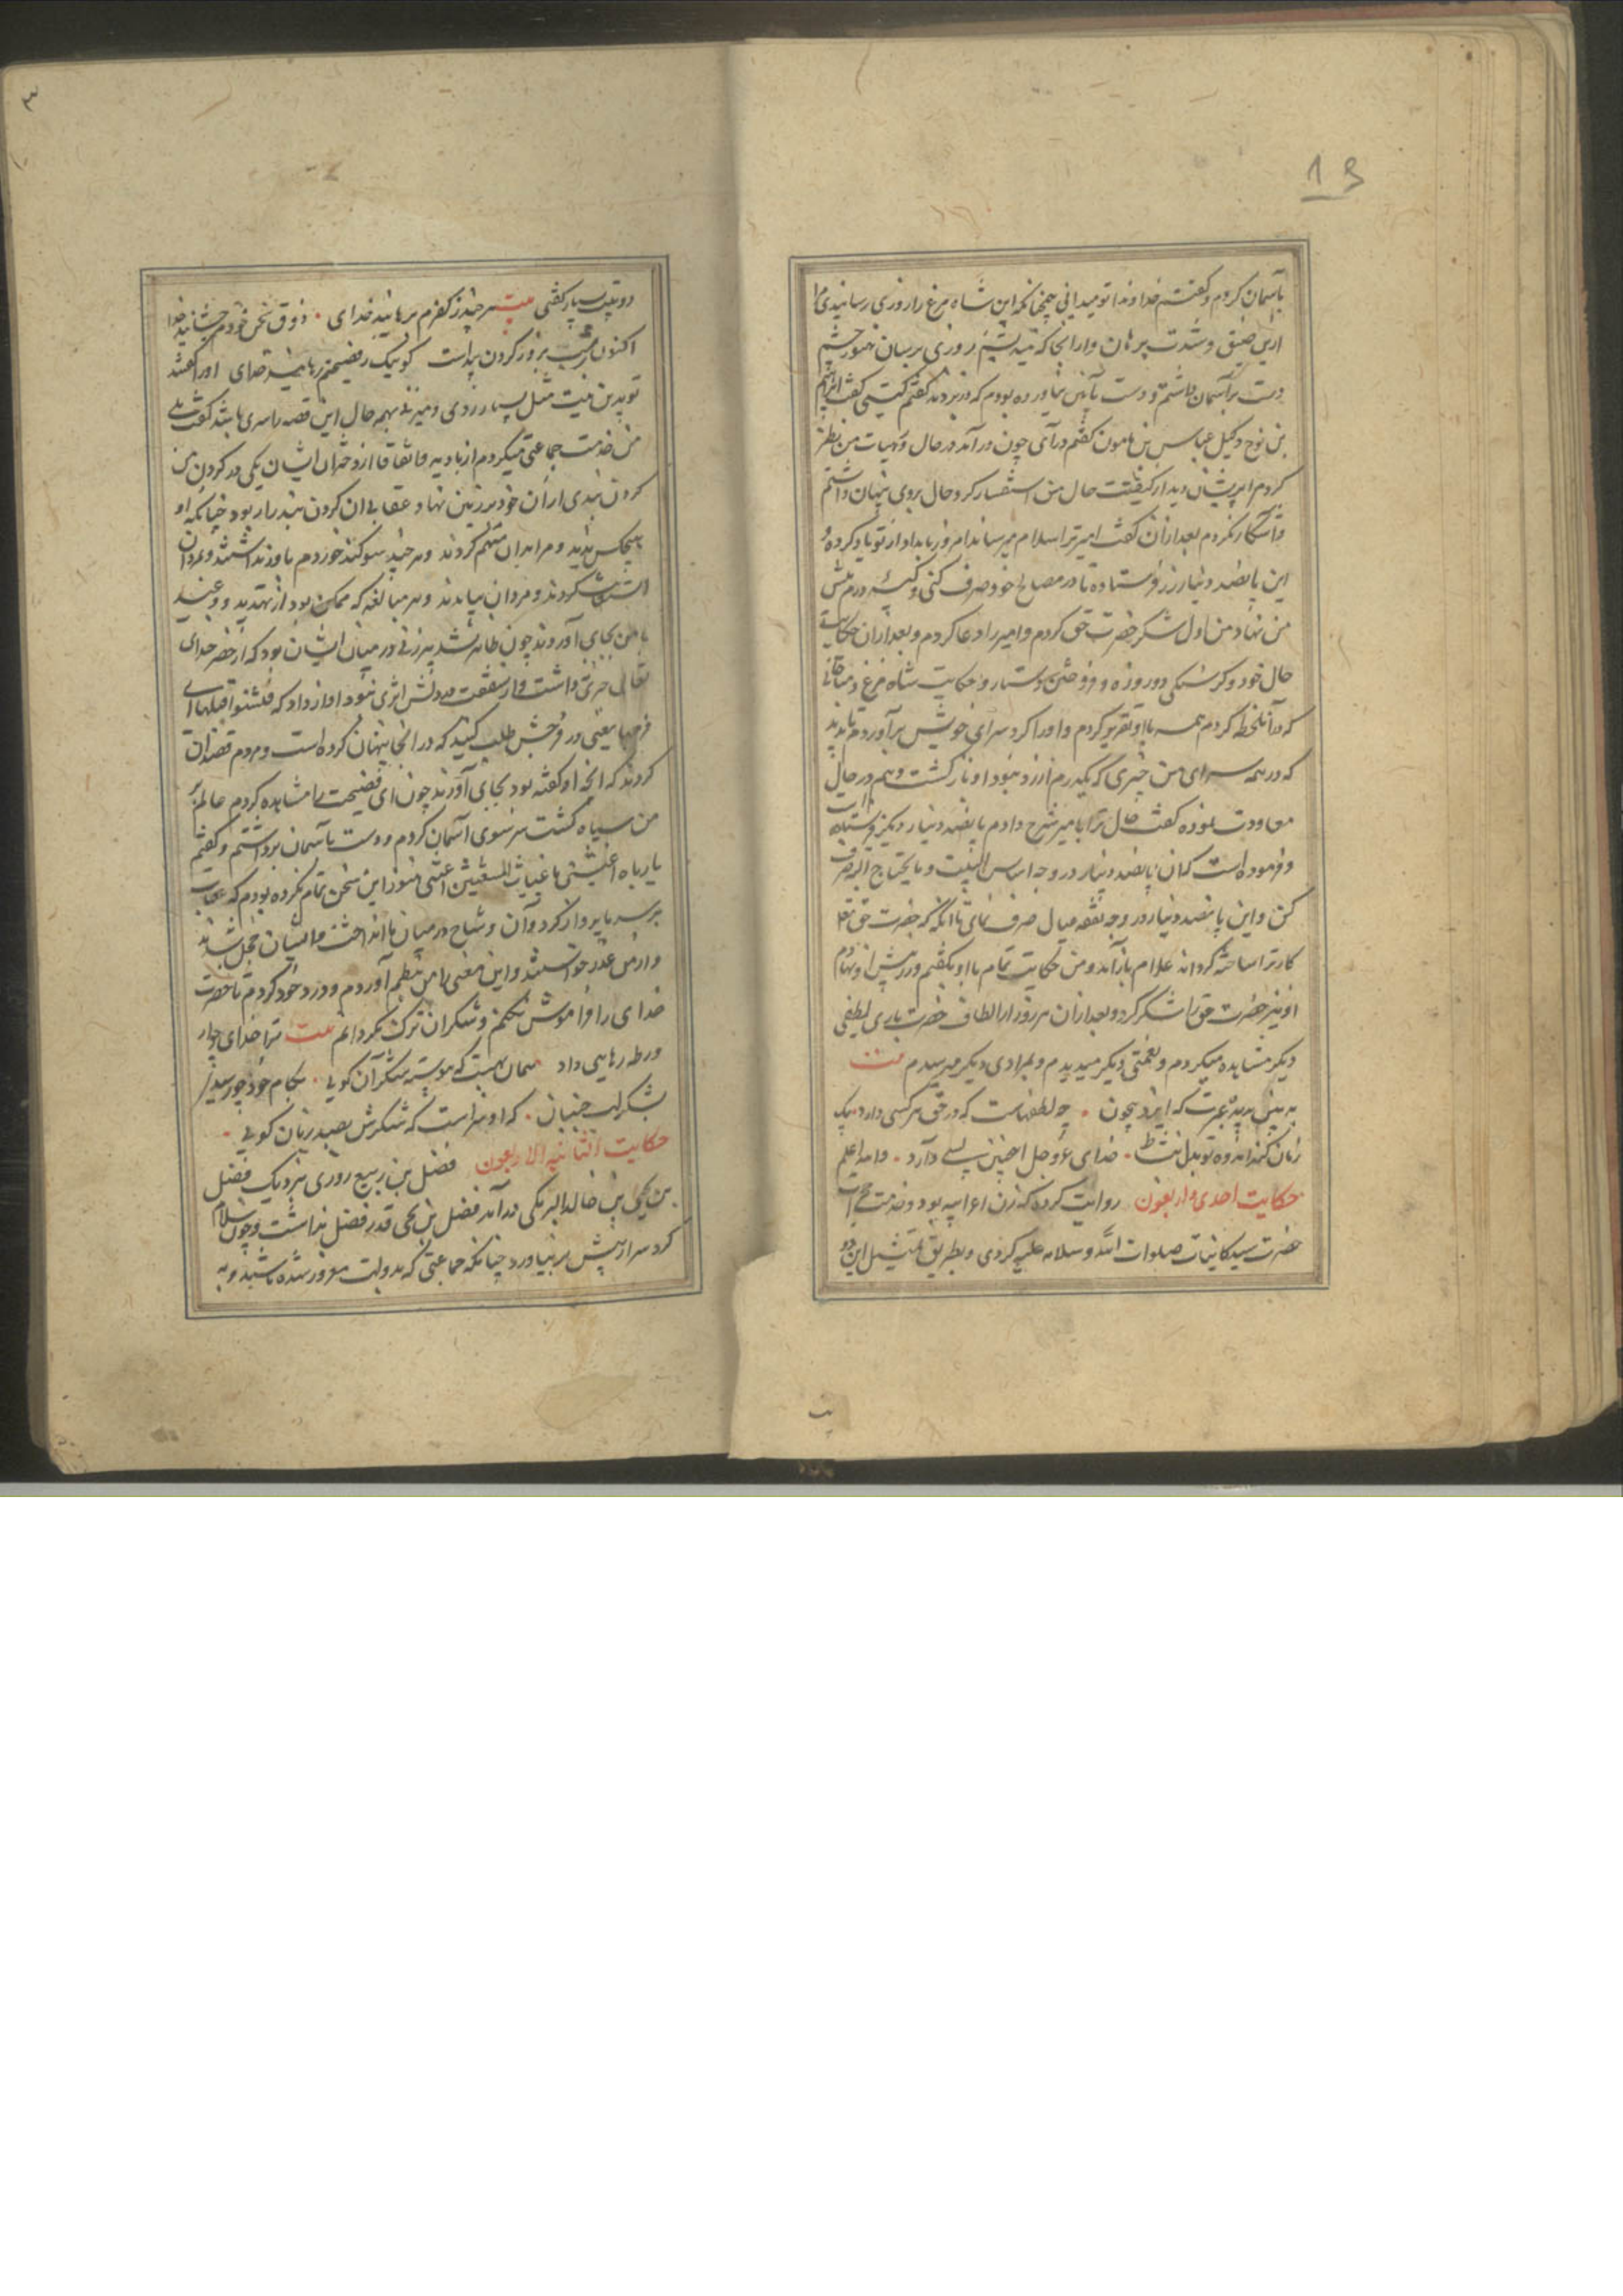 13
بآسمان کردم و گفتم خداوندا تو میدانی چنانکه این شاه مرغ را روزی رسانیدی مرا
ازین ضیق و شدت برهان و از انجا که نپندیشم روزی برسان هنوز چشم
دست بر آسمان داشتم و دست پایین نیاورده بودم که در بزدند گفتم کیستی گفت ابراهیم
بن نوح وکیل عباس بن مامون گفتم درآی چون درآمد در حال و هیات من نظر
کردم پریشان دید از کیفیت حال من استفسار کرد حال بروی پنهان داشتم
و آشکار نکردم بعد ازان گفت امیر ترا سلام میرساند امروز بامداد از تو یاد کرده و
این پانصد دینار زر فرستاده تا در مصالح خود صرف کنی و کیسه درم پیش
من نهاد من اول شکر حضرت حق کردم و امیر را دعا کردم و بعد ازان حکایت
حال خود و گرسنگی دو روزه و فروختن دستار و حکایت شاه مرغ و مناجاتی
که در آن لحظه کردم همه با او تقریر کردم و او را گرد سرای خویش برآوردم تا بدید
که در همه سرای من چیزی که یکدرم ارزد نبود او بازگشت و هم در حال
معاودت نموده گفت حال ترا با میر شرح دادم پانصد دینار دیگر فرستاده
و فرموده است که آن پانصد دینار در وجه اساس البیت و مایحتاج الیه صرف
کن و این پانصد دینار در وجه نفقه عیال صرف نمای تا آنکه که حضرت حق تعالی
کار ترا ساخته گرداند غلام باز آمد و من حکایت تمام با او بگفتم و زر پیش او نهادم
او نیز حضرت حق را شکر کرد و بعد ازان هر روز از الطاف حضرت باری لطفی
دیگر مشاهده میکردم و نعمتی دیگر میدیدم و بمرادی دیگر میرسیدم بیت
به بین بدیده عبرت که ایزد بیچون • چه لطفهاست که در حق هر کسی دارد • بیک
زمان کند اندوه تو بدل بنشاط • خدای عزوجل اینچنین بسی دارد • والله اعلم
حکایت احدی و اربعون روایت کرده که زن اعرابیه بود و خدمت حجرات
حضرت سید کاینات صلوات الله و سلامه علیه کردی و بطریق تمثیل این دو
۳
دو بیت بسیار گفتی بیت هر چند ز کفرم برهانید خدای • ذوق سخن خودم چشانید خدا
اکنون بروز کردن پیداست کو نیک رفضیحتم رهانید خدای او را گفتند
تو بدین بیت مثل بسیار زدی و میزنی بهمه حال این قصه را سری باشد گفت بلی
من خدمت جماعتی میکردم از بادیه و اتفاقا از دختران ایشان یکی در گردن من
گردن بندی از ان خود بر زمین نهاد و عقابی ان گردن بند را بربود چنانکه او
هیچکس ندید و مرا بدان متهم کردند و هر چند سوگند خوردم باور نداشتند و مردان
کردند و مردان بیامدند و هر مبالغه که ممکن بود از تهدید و وعید
با من بجای آوردند چون ظاهر نشد پیرزنی در میان ایشان بود که از حضر خدای
تعالی خبری داشت و از شفقت در دلش اثری نبود آواز داد که فتشوا قبلها ای
فرجها یعنی در فرجش طلب کنید که در انجا پنهان کرده است و مردم قصد ان
کردند که انچه او گفته بود بجای آورند چون ای فضیحت را مشاهده کردم عالم بر
من سیاه گشت سر سوی آسمان کردم و دست بآسمان برداشتم و گفتم
یا رباه اغثنی یا غیاث المستغیثین اغثنی هنوز این سخن تمام نکرده بودم که عقاب
بر سر ما پرواز کرد و آن وشاح در میان ما انداخت و ایشان خجل شدند
و از من عذر خواستند و این معنی را من بنظم آوردم و ورد خود کردم تا حضرت
خدای را فراموش نکنم و شکران ترک نگردانم بیت ترا خدای چو از
ورطه رهایی داد همان بهست که پیوسته شکر آن گویی • بکام خود چو رسیدی
بشکر لب جنبان • که او سزاست که شکرش بصد زبان گویی •
حکایت الثانیه الاربعون فضل بن ربیع روزی بنزدیک فضل
بن یحیی بن خالد البرمکی درآمد فضل بن یحیی قدر فضل نداشت و چون سلام
کرد سر از پیش بر نیاورد چنانکه جماعتی که بدولت مغرور شده باشند و به